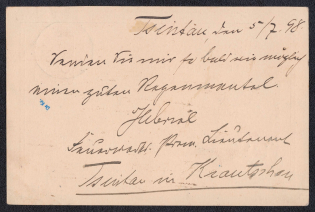 Tsintau, den 5/7. 98.
Senden Sie mir so bald wie möglich
einen guten Regenmantel.
Feuerwerks Prem. Lieutenant
Tsintau in Kiautschau